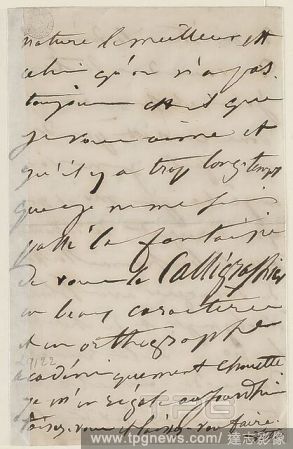 nature le meilleur est
celui qu'on n'a pas.
toujours est il que
je vous aime et
qu'il y a trop longtemps
que je ne me suis
passé la fantaisie
de vous le Calligraphier
en beaux caractères
et en orthographe
académiquement chouette
je m'en régale aujourd'hui
laissez-vous faire
27122
TPG
www.tpgnews.com 達志影像